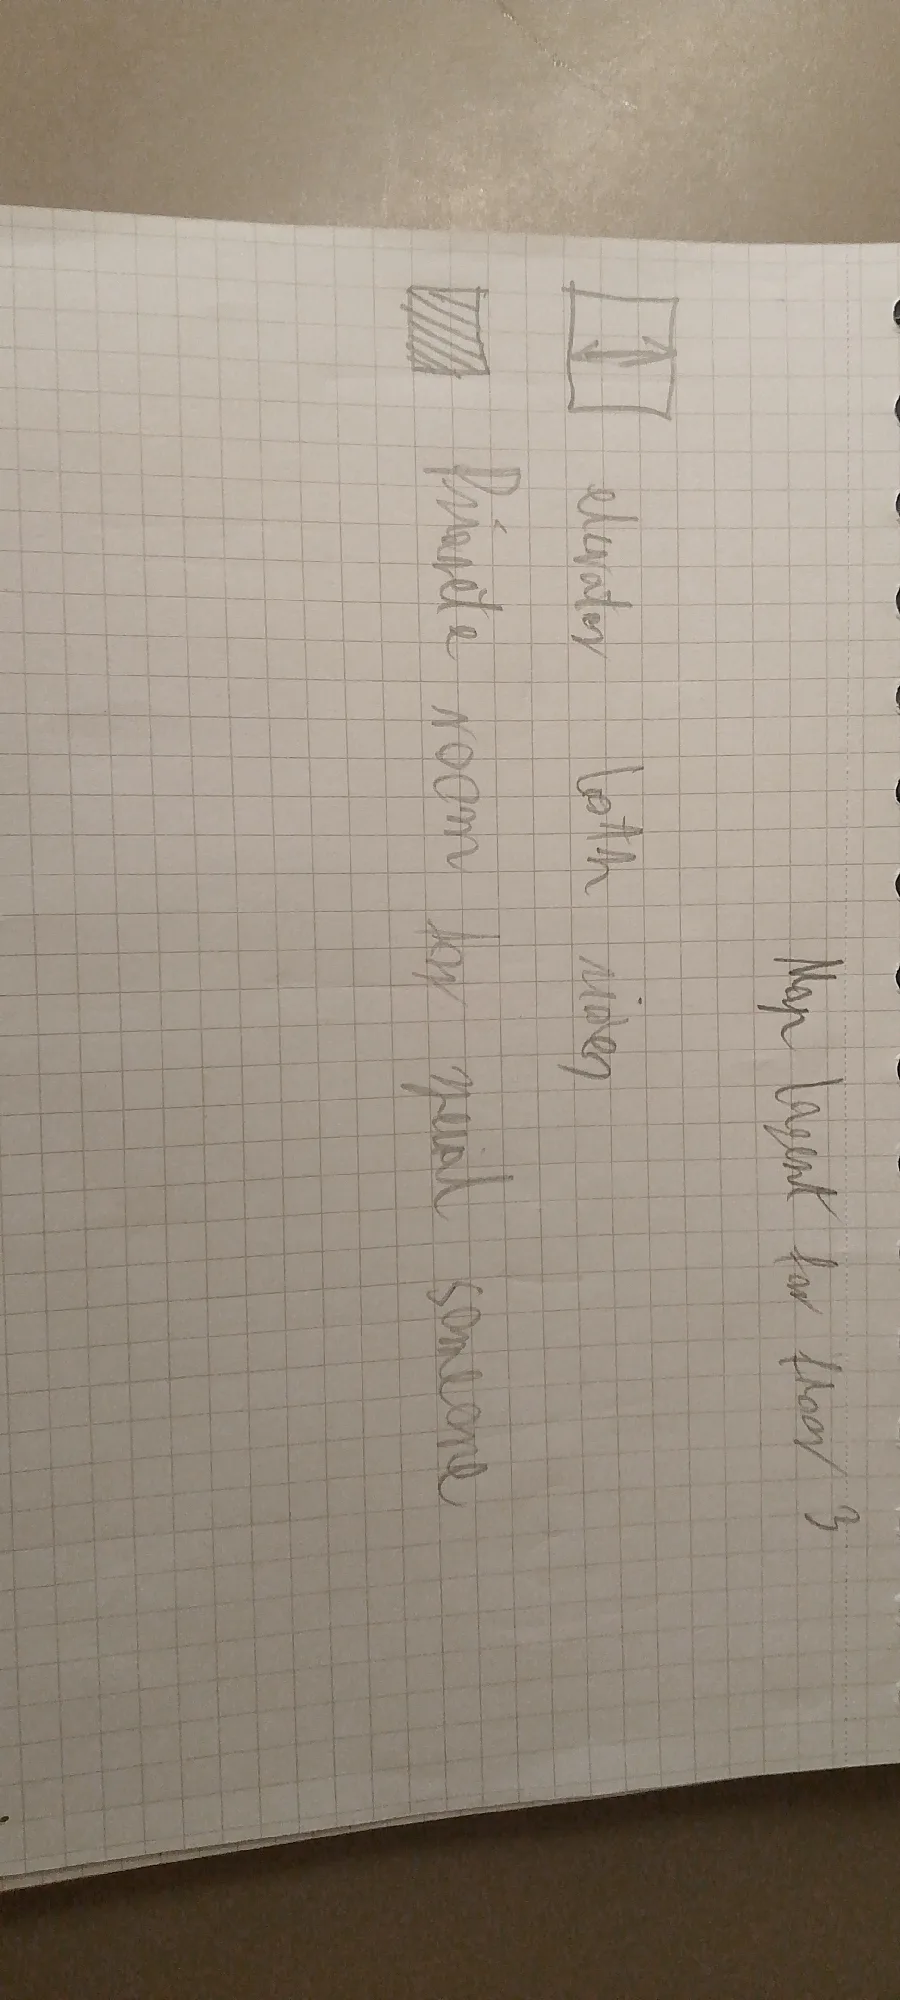 Map lagent for floor 3
elevator both sides
Private room for special someone